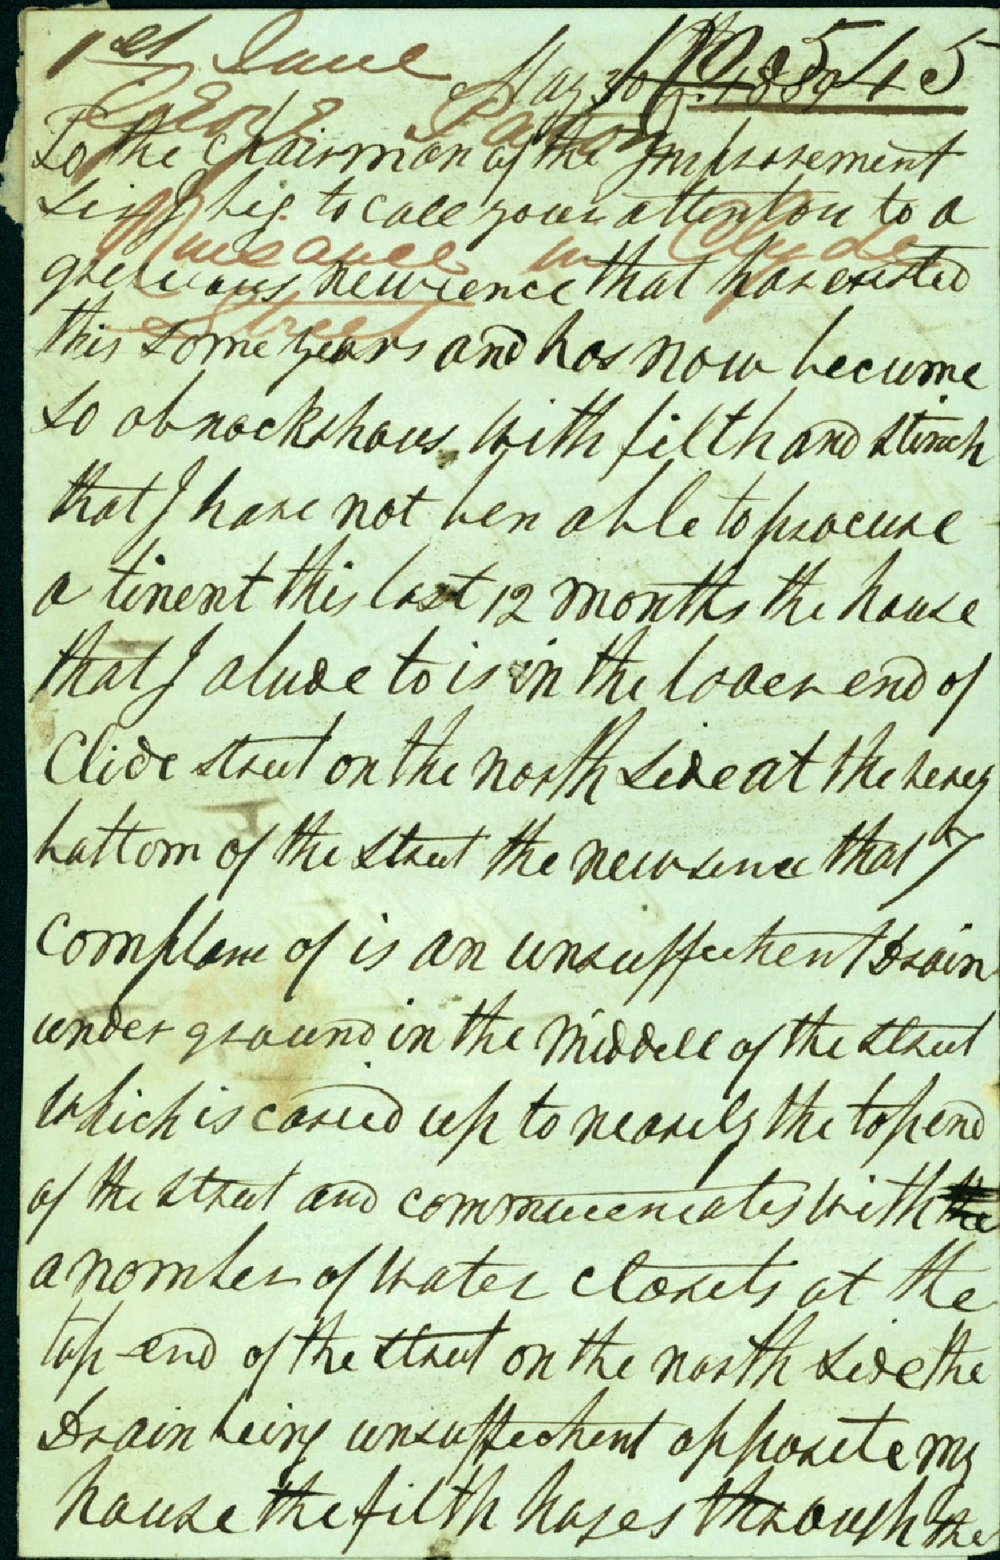 1st June
May 30th 1839
545
George
To the Chairman of the Imprsovement
Sir I big to call your attenton to a
Nuesance in Clyde
greevious newsence that has existed
Street
this some years and has now becume
so obnockshous with filth and stinch
that I have not ben able to procure
a tinent this last 12 months the house
that I alude to is in the loaer end of
Clide street on the north side at the verey
bottom of the street the newsence that I
complane of is an unsuffechent Drain
under ground in the middell of the street
which is caried up to nearely the top end
of the street and communecates with the
a nomber of water closets at the
top end of the street on the north side the
Drain being unsuffechent opposite my
house the filth hozes through the